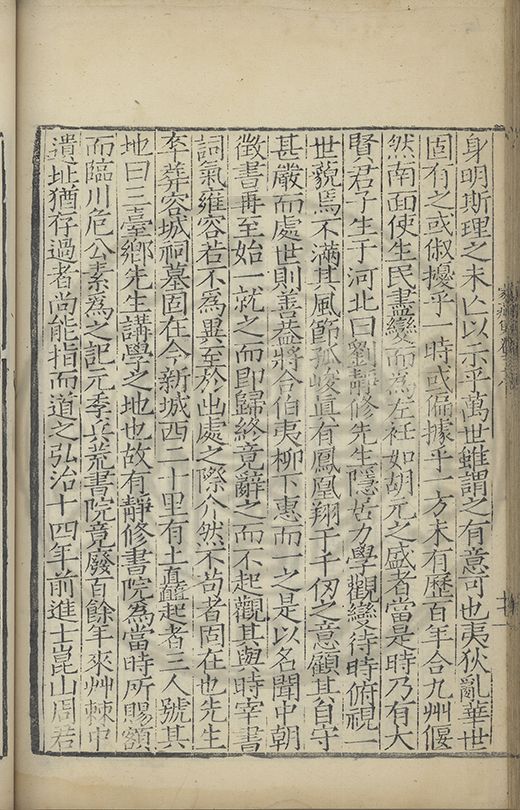 身明斯理之未亡以示乎萬世雖謂之有意可也夷狄亂華世
固有之或俶擾乎一時或偏據乎一方未有歷百年合九州偃
然南面使生民盡變而為左衽如胡元之盛者當是時乃有大
賢君子生于河北曰劉靜修先生隱居力學觀變待時俯視一
世藐焉不滿其風節孤峻真有鳳凰翔于千仞之意顧其自守
甚嚴而處世則善蓋將合伯夷柳下惠而一之是以名聞中朝
徵書再至始一就之而即歸終竟辭之而不起觀其與時宰書
詞氣雍容若不為異至於出處之際介然不苟者固在也先生
卒葬容城祠墓固在今新城西二十里有土矗起者三人號其
地曰三臺鄉先生講學之地也故有靜修書院為當時所賜額
而臨川危公素為之記元季兵荒書院竟廢百餘年來艸棘中
遺址猶存過者尚能指而道之弘治十四年前進士崑山周君